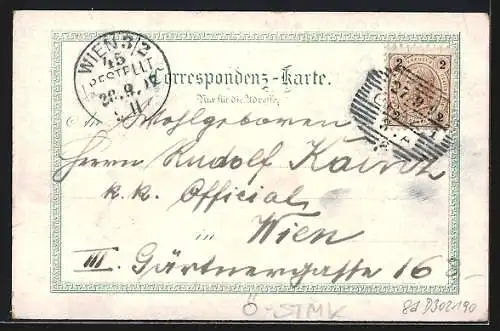 WIEN 3/2
45
BESTELLT
Correspondenz-Karte.
Nur für die Adresse.
2 2
27.9
2 2
Wohlgeboren
Herrn Rudolf Kainz
k.k. Official
in Wien
III. Gärtnergasse 16
Ö-STMK